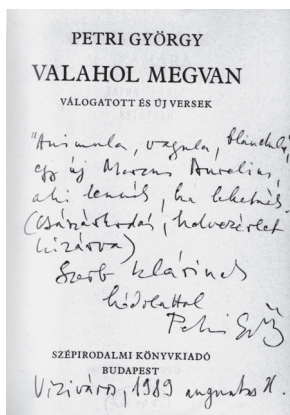 PETRI GYÖRGY
VALAHOL MEGVAN
VÁLOGATOTT ÉS ÚJ VERSEK
"Animula, vagula, blandula,
egy új Marcus Aurelius,
aki lennék, ha lehetnék"
(császárkodás, hadvezérlet
kizárva)
Szerb Klárinak
hódolattal
Petri György
SZÉPIRODALMI KÖNYVKIADÓ
BUDAPEST
Víziváros, 1989 augusztus